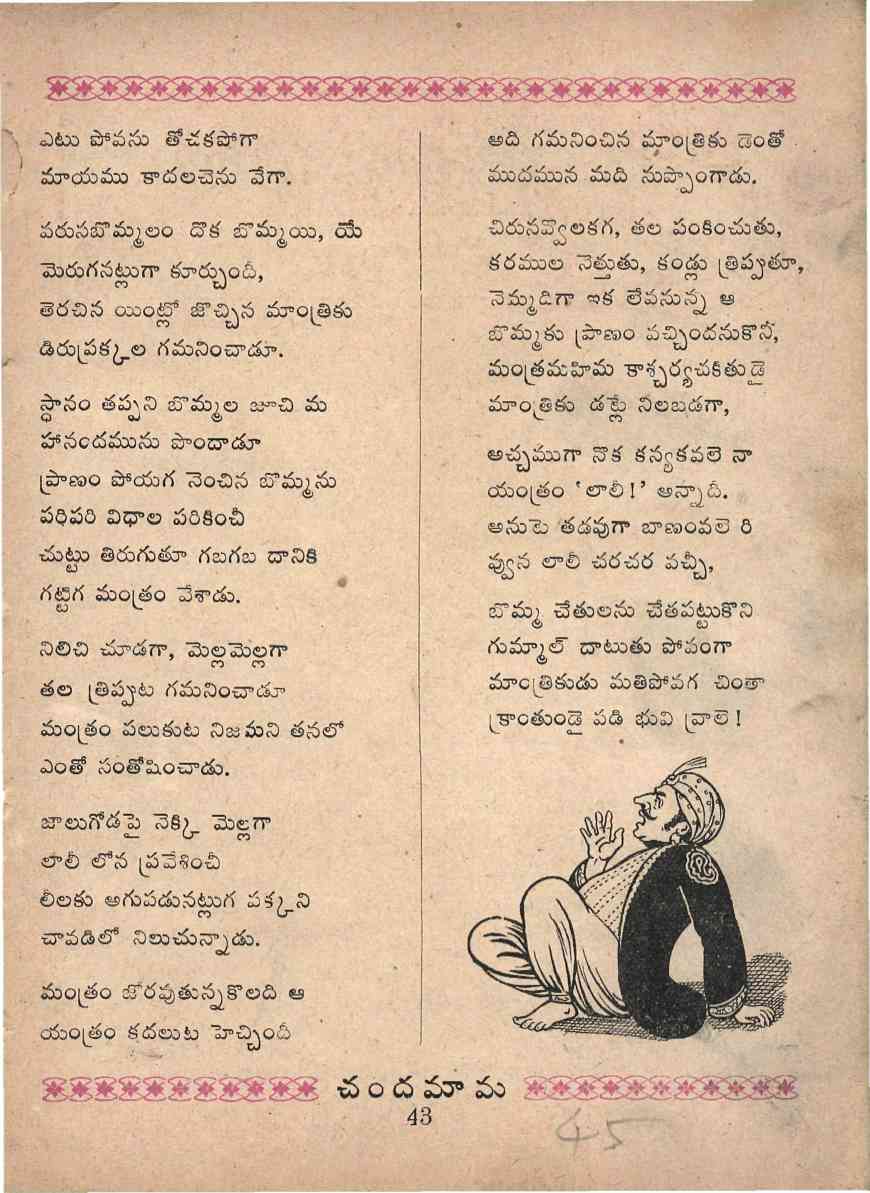 ఎటు పోవను తోచకపోగా
మాయము కాదలచెను వేగా.
వరుసబొమ్మలం దొక బొమ్మయి, యే
మెరుగనట్లుగా కూర్చుందీ,
తెరచిన యింట్లో జొచ్చిన మాంత్రికు
డిరుప్రక్కల గమనించాడూ.
స్థానం తప్పని బొమ్మల జూచి మ
హానందమును పొందాడూ
ప్రాణం పోయగ నెంచిన బొమ్మను
పరిపరి విధాల పరికించీ
చుట్టు తిరుగుతూ గబగబ దానికి
గట్టిగ మంత్రం వేశాడు.
నిలిచి చూడగా, మెల్లమెల్లగా
తల త్రిప్పుట గమనించాడూ
మంత్రం పలుకుట నిజమని తనలో
ఎంతో సంతోషించాడు.
జాలుగోడపై నెక్కి మెల్లగా
లాలీ లోన ప్రవేశించీ
లీలకు అగుపడునట్లుగ పక్కని
చావడిలో నిలుచున్నాడు.
మంత్రం జోరవుతున్నకొలది ఆ
యంత్రం కదలుట హెచ్చిందీ
అది గమనించిన మాంత్రికు డెంతో
ముదమున మది నుప్పొంగాడు.
చిరునవ్వొలకగ, తల పంకించుతు,
కరముల నెత్తుతు, కండ్లు త్రిప్పుతూ,
నెమ్మదిగా ఇక లేవనున్న ఆ
బొమ్మకు ప్రాణం వచ్చిందనుకొనీ,
మంత్రమహిమ కాశ్చర్యచకితుడై
మాంత్రికు డట్లే నిలబడగా,
అచ్చముగా నొక కన్యకవలె నా
యంత్రం 'లాలీ!' అన్నాదీ.
అనుటె తడవుగా బాణంవలె రి
వ్వున లాలీ చరచర వచ్చీ,
బొమ్మ చేతులను చేతపట్టుకొని
గుమ్మాల్ దాటుతు పోవంగా
మాంత్రికుడు మతిపోవగ చింతా
క్రాంతుండై పడి భువి వ్రాలె!
చందమామ
43
45